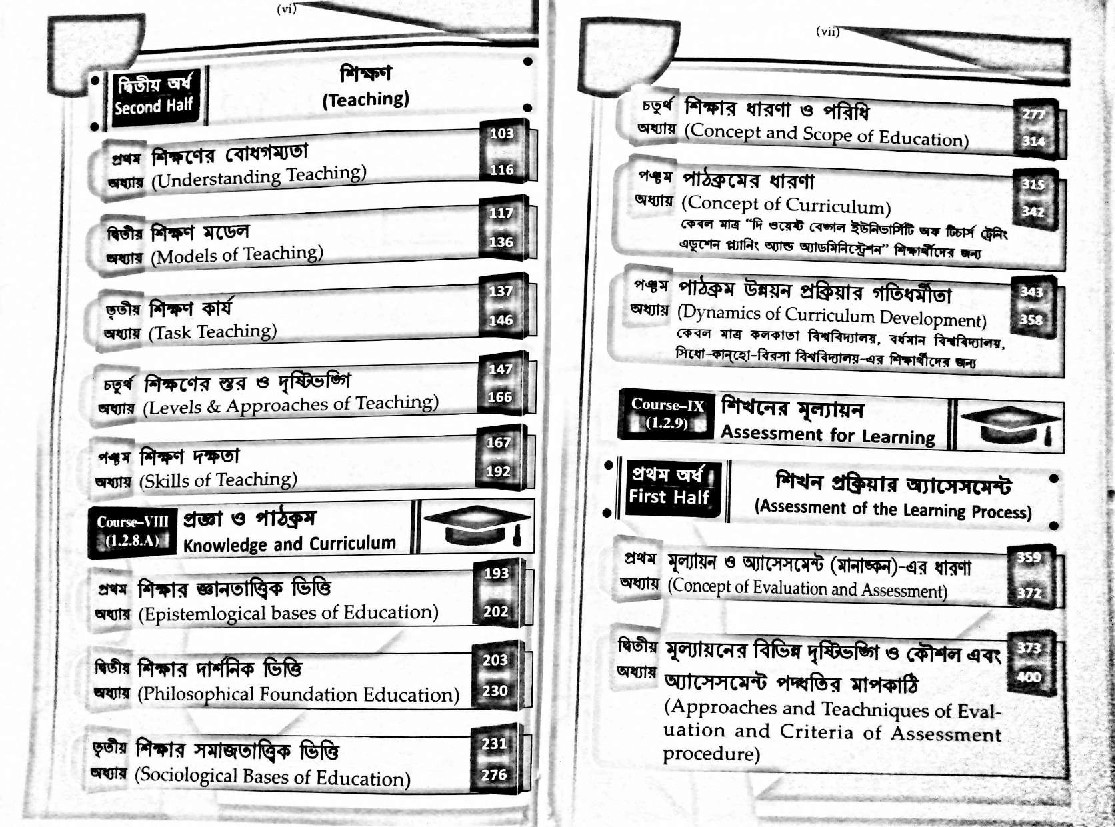 (vi)
দ্বিতীয় অর্ধ
Second Half
শিক্ষণ
(Teaching)
প্রথম শিক্ষণের বোধগম্যতা
অধ্যায় (Understanding Teaching)
103
116
দ্বিতীয় শিক্ষণ মডেল
অধ্যায় (Models of Teaching)
117
136
তৃতীয় শিক্ষণ কার্য
অধ্যায় (Task Teaching)
137
146
চতুর্থ শিক্ষণের স্তর ও দৃষ্টিভঙ্গি
অধ্যায় (Levels & Approaches of Teaching)
147
166
পঞ্চম শিক্ষণ দক্ষতা
অধ্যায় (Skills of Teaching)
167
192
Course–VIII
(1.2.8.A)
প্রজ্ঞা ও পাঠক্রম
Knowledge and Curriculum
প্রথম শিক্ষার জ্ঞানতাত্ত্বিক ভিত্তি
অধ্যায় (Epistemlogical bases of Education)
193
202
দ্বিতীয় শিক্ষার দার্শনিক ভিত্তি
অধ্যায় (Philosophical Foundation Education)
203
230
তৃতীয় শিক্ষার সমাজতাত্ত্বিক ভিত্তি
অধ্যায় (Sociological Bases of Education)
231
276
(vii)
চতুর্থ শিক্ষার ধারণা ও পরিধি
অধ্যায় (Concept and Scope of Education)
277
314
পঞ্চম পাঠক্রমের ধারণা
অধ্যায় (Concept of Curriculum)
কেবল মাত্র “দি ওয়েস্ট বেঙ্গল ইউনিভার্সিটি অফ টিচার্স ট্রেনিং
এডুশেন প্ল্যানিং অ্যান্ড অ্যাডমিনিস্ট্রেশন” শিক্ষার্থীদের জন্য
315
342
পঞ্চম পাঠক্রম উন্নয়ন প্রক্রিয়ার গতিধর্মীতা
অধ্যায় (Dynamics of Curriculum Development)
কেবল মাত্র কলকাতা বিশ্ববিদ্যালয়, বর্ধমান বিশ্ববিদ্যালয়,
সিধো-কান্‌হো-বিরসা বিশ্ববিদ্যালয়-এর শিক্ষার্থীদের জন্য
343
358
Course–IX
(1.2.9)
শিখনের মূল্যায়ন
Assessment for Learning
প্রথম অর্ধ
First Half
শিখন প্রক্রিয়ার অ্যাসেসমেন্ট
(Assessment of the Learning Process)
প্রথম মূল্যায়ন ও অ্যাসেসমেন্ট (মানাঙ্কন)-এর ধারণা
অধ্যায় (Concept of Evaluation and Assessment)
359
372
দ্বিতীয় মূল্যায়নের বিভিন্ন দৃষ্টিভঙ্গি ও কৌশল এবং
অধ্যায় অ্যাসেসমেন্ট পদ্ধতির মাপকাঠি
(Approaches and Teachniques of Eval-
uation and Criteria of Assessment
procedure)
373
400